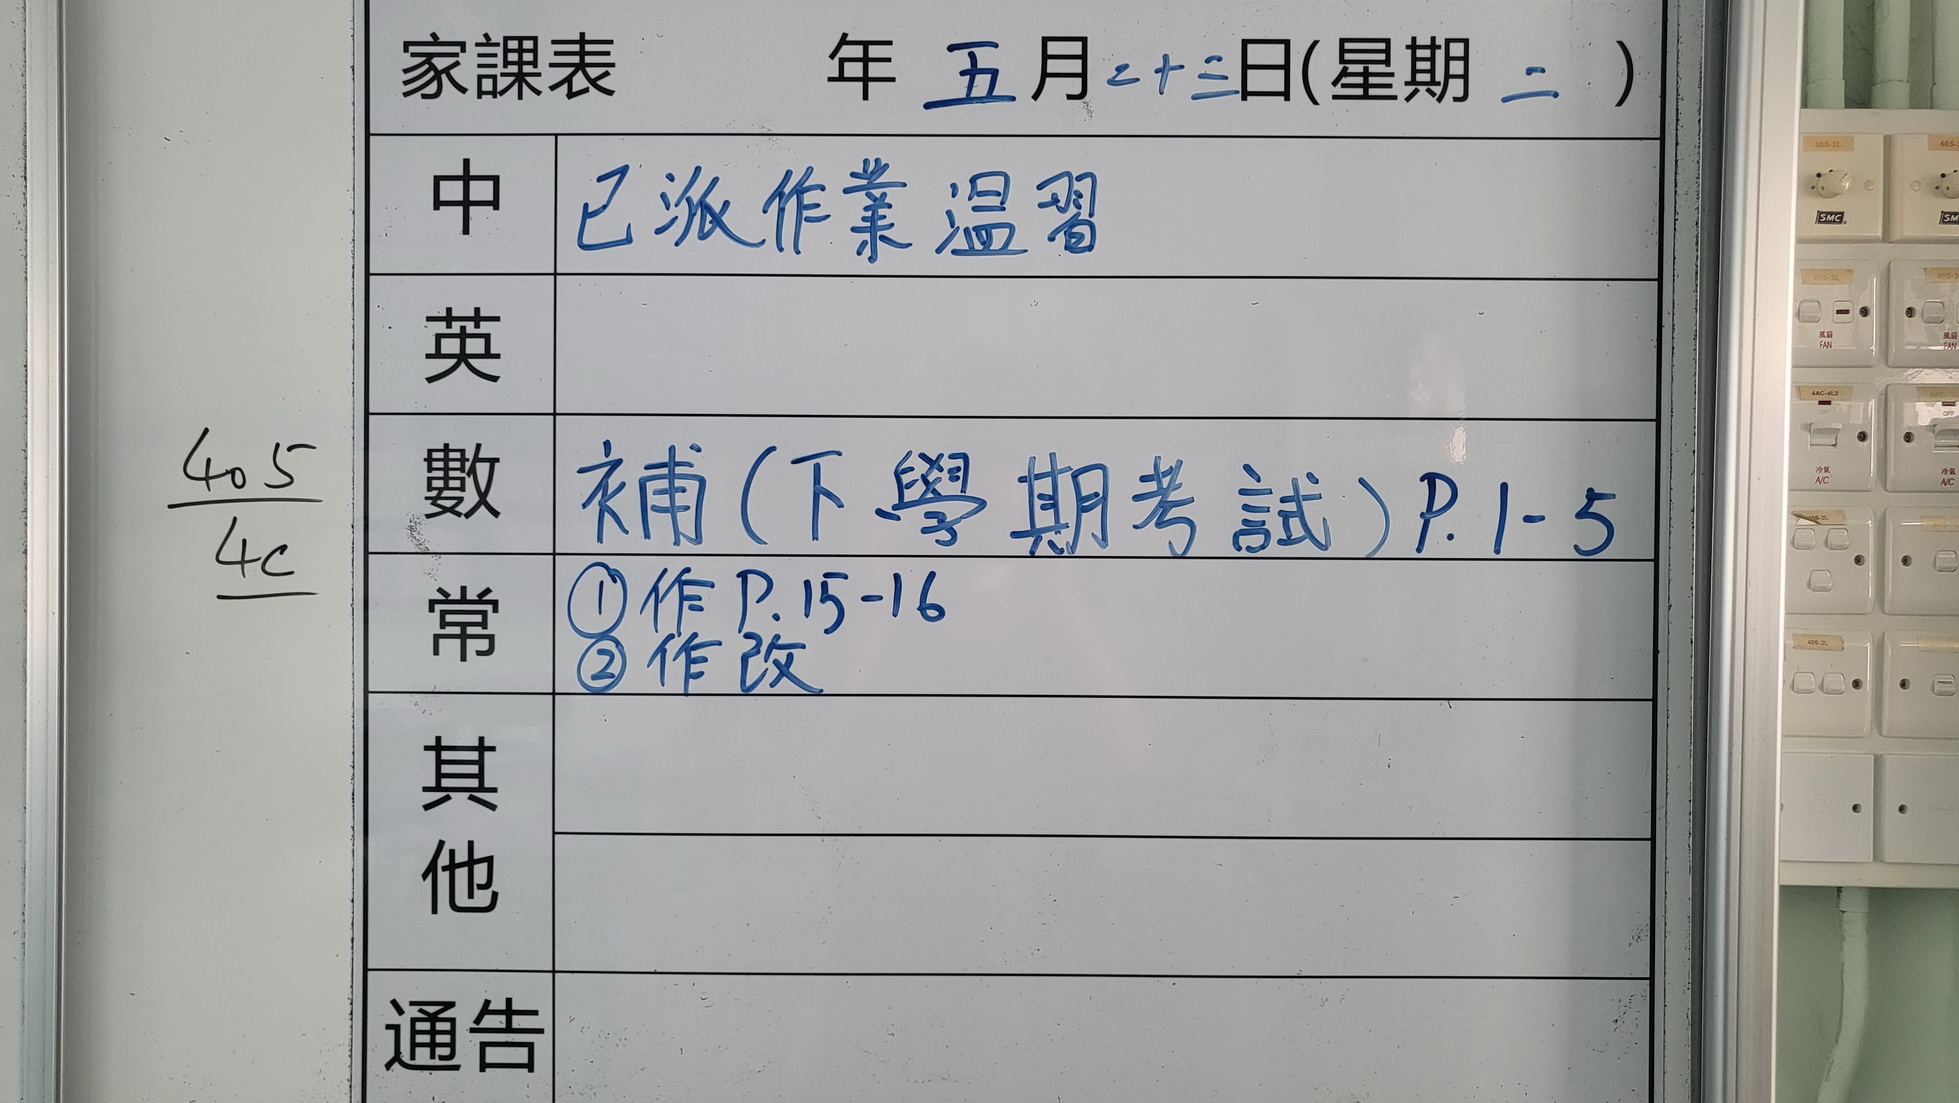 家課表 年 五月二十三日(星期 二 )
中 已派作業溫習
英
數 補(下學期考試)P.1-5
常 ①作P.15-16
②作改
其他
通告
405
4C
405-2L
SMC
風扇
FAN
風扇
FAN
4AC-4L2
冷氣
A/C
冷氣
A/C
405-2L